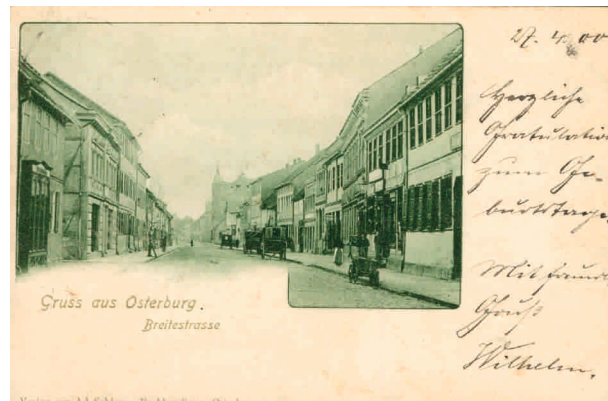 27. 4. 00
Herzliche
Gratulation
zum Ge-
burtstage.
Mit
Gruß
Wilhelm.
Gruss aus Osterburg.
Breitestrasse